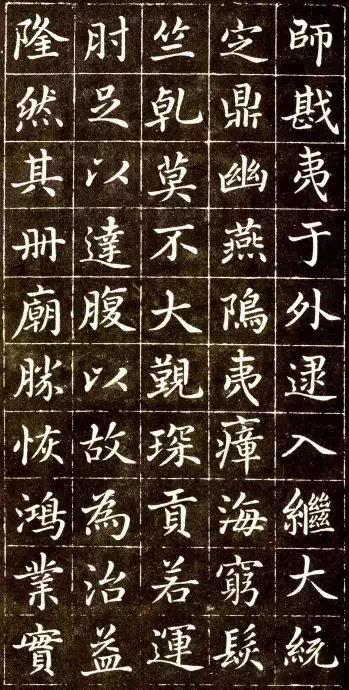 師戡夷于外逮入繼大統
㝎鼎幽燕隝夷瘴海窮髮
竺乹莫不大覲琛貢若運
肘足以達腹以故為治益
隆然其冊廟勝恢鴻業實